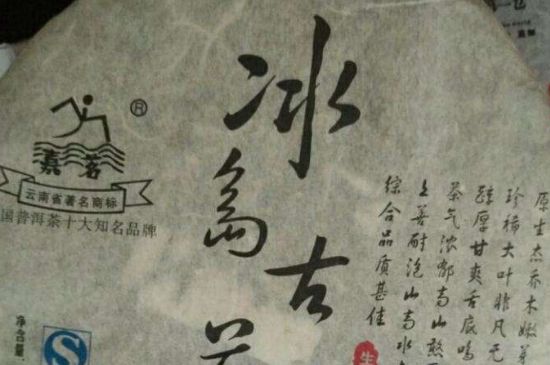 嘉茗
®
云南省著名商标
国普洱茶十大知名品牌
冰岛古
原生态乔木嫩芽
珍稀大叶非凡无
醇厚甘爽舌底鸣
茶气浓郁高山憨
上善耐泡山高水
综合品质甚佳
净含量:
生
world